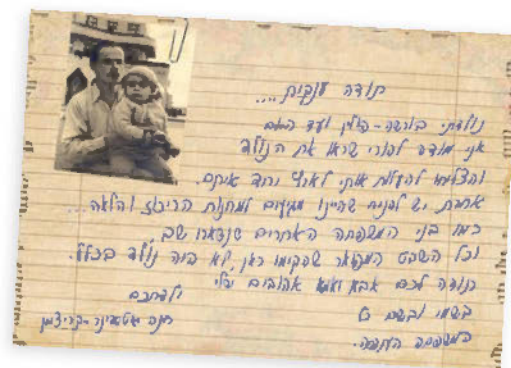 תודה ענקית ....
נולדתי בורשה - פולין ועד היום
אני מודה להורי שראו את הנולד
והצליחו להעלות אותי לארץ יחד איתם.
אחרת יש להניח שהיינו מגיעים למחנות הריכוז והלאה...
כמו בני המשפחה האחרים שנשארו שם,
וכל השבט המפואר שהקימו כאן לא היה נולד בכלל.
תודה לכם אבא ואמא אהובים שלי
ילדתכם
בשמי ובשם כל
המשפחה הענפה.
חנה